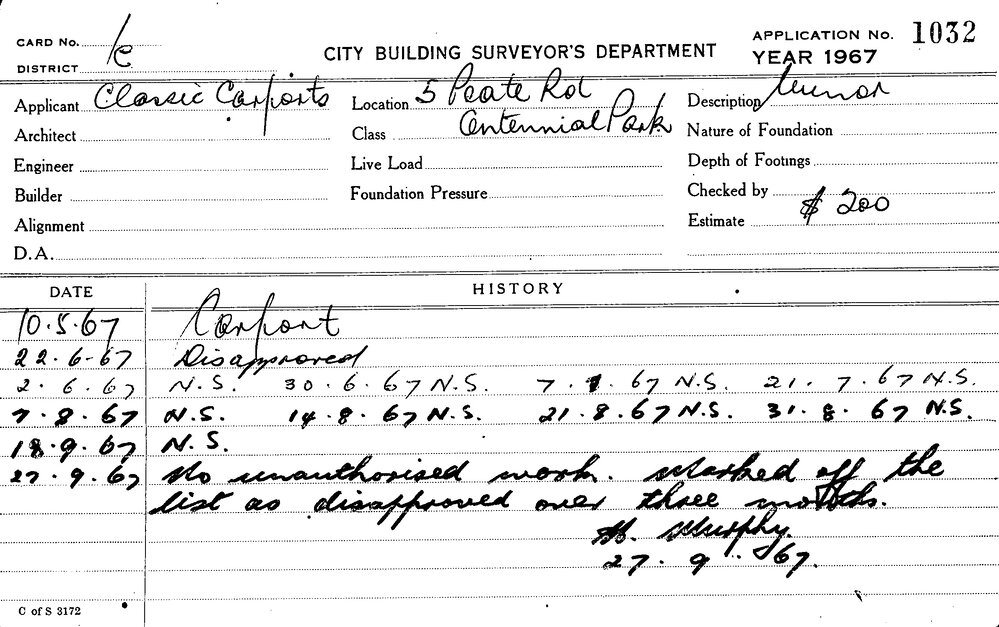 CARD No.
DISTRICT
CITY BUILDING SURVEYOR'S DEPARTMENT
APPLICATION No. 1032
YEAR 1967
Applicant Classic Carports
Location 5 Peate Rd
Description Minor
Architect
Class Centennial Park
Nature of Foundation
Engineer
Live Load
Depth of Footings
Builder
Foundation Pressure
Checked by
Alignment
Estimate $ 200
D.A.
DATE HISTORY
10.5.67 Carport
22.6-67 Disapproved
2.6.67 N.S. 30.6.67 N.S. 7.7.67 N.S. 21.7.67 N.S.
7.8.67 N.S. 14.8.67 N.S. 21.8.67 N.S. 31.8.67 N.S.
18.9.67 N.S.
27.9.67 No unauthorised work. Marked off the
list as disapproved over three months.
Murphy.
27.9.67.
C of S 3172